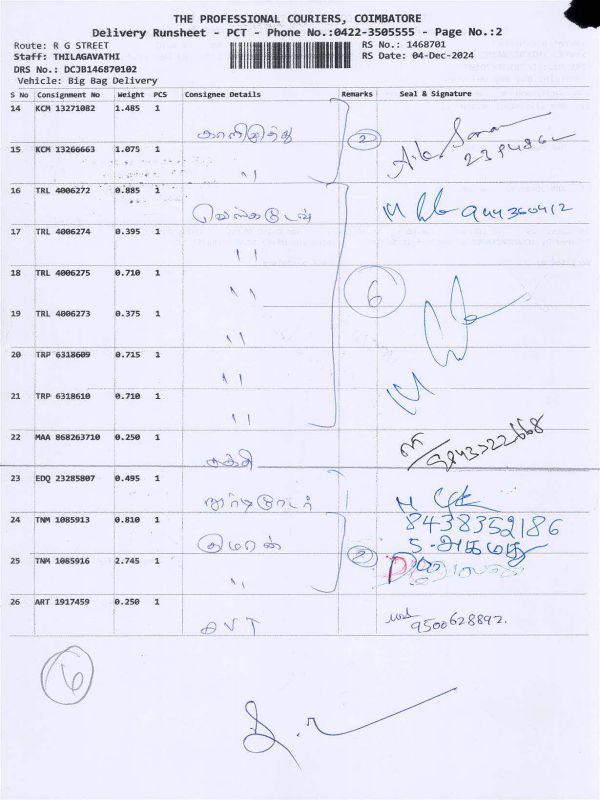 THE PROFESSIONAL COURIERS, COIMBATORE
Delivery Runsheet - PCT - Phone No.:0422-3505555 - Page No.:2
Route: R G STREET RS No.: 1468701
Staff: THILAGAVATHI RS Date: 04-Dec-2024
DRS No.: DCJB146870102
Vehicle: Big Bag Delivery
S No Consignment No Weight PCS Consignee Details Remarks Seal & Signature
14 KCM 13271082 1.485 1
2
15 KCM 13266663 1.075 1 ״
16 TRL 4006272 0.885 1
17 TRL 4006274 0.395 1 ״
18 TRL 4006275 0.710 1 ״ 6
19 TRL 4006273 0.375 1 ״
20 TRP 6318609 0.715 1 ״
21 TRP 6318610 0.710 1 ״
22 MAA 868263710 0.250 1 சக்தி
23 EDQ 23285807 0.495 1
24 TNM 1085913 0.810 1 குமரன் 8438352186
25 TNM 1085916 2.745 1 ״ 2
26 ART 1917459 0.250 1 9500628892.
6